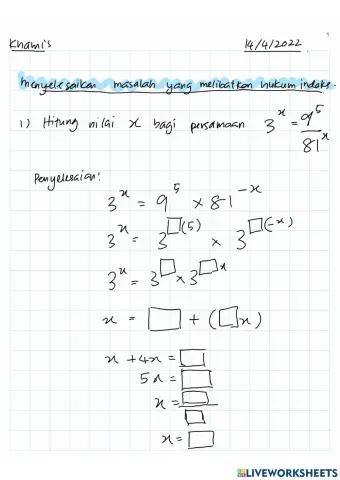 1
Khamis 14/4/2022
Menyelesaikan masalah yang melibatkan hukum indeks.
1) Hitung nilai x bagi persamaan 3^x = 9^5 / 81^x
Penyelesaian:
3^x = 9^5 × 81^-x
3^x = 3^□(5) × 3^□(-x)
3^x = 3^□ × 3^□x
x = □ + (□x)
x + 4x = □
5x = □
x = □/□
x = □
LIVEWORKSHEETS